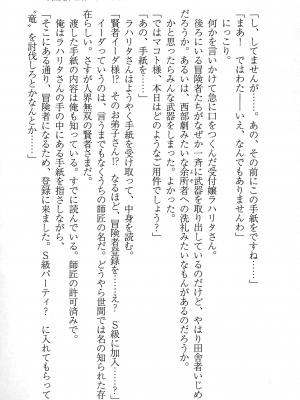 「し、してませんが……。あの、その前にこの手紙をですね……」
「まあ！　ではわた――いえ、なんでもありませんわ」
にっこり。
何かを言いかけて急に口をつぐんだ受付嬢ラハリタさん。
後ろにいる冒険者たちがなぜか一斉に武器を取り出しているのだけど、やはり田舎者いじめ
だろうか。あるいは、西部劇みたいな余所者への洗礼みたいなものがあるのだろうか。
かと思ったらみんな武器をしまった。よかった。
「ではマコト様、本日はどのようなご用件でしょう？」
「あの、手紙を……」
ラハリタさんはようやく手紙を受け取って、中身を読む。
「賢者イーダ様！？　そのお弟子さん!?　なるほど、冒険者登録を……え？　Ｓ級に加入……？」
渡した手紙の内容は俺も知っている。すでに読んでいる。師匠の許可済みで。
イーダってのは、言うまでもなくうちの師匠の名だ。どうやら世間では名の知られた存
在らしい。さすが人界無双の賢者さまだ。
俺はラハリタさんの手の中にある手紙を指さしながら、
「そこにある通り、冒険者になるため、登録に来ました。Ｓ級パーティ？　に入れてもらって
〝竜〟を討伐しろとかなんとか……」